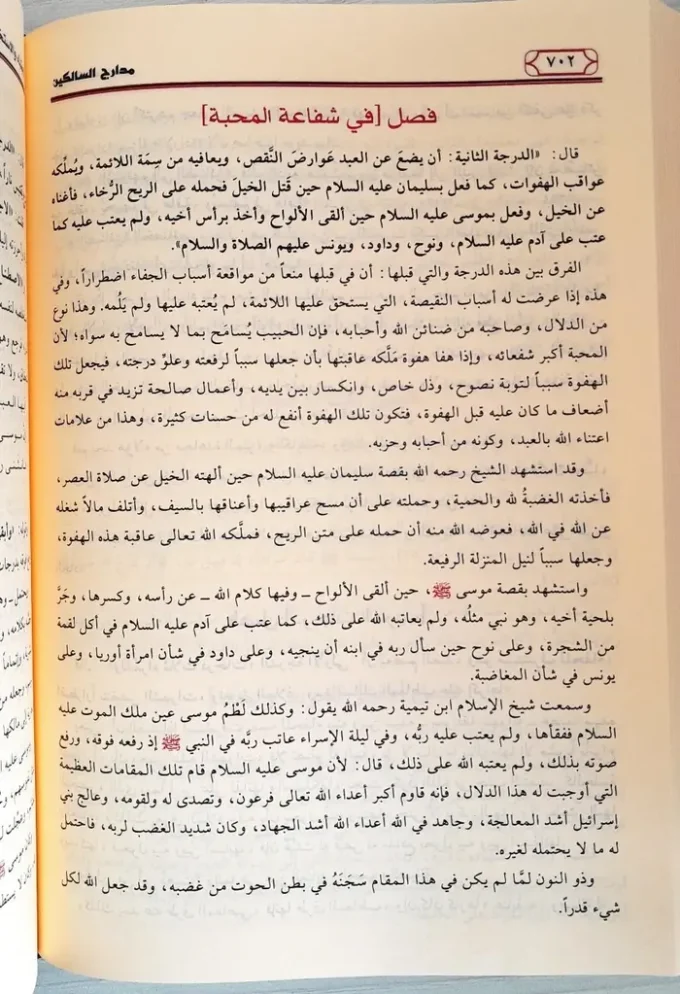 مدارج السالكين
٧٠٢
فصل [في شفاعة المحبة]
قال: «الدرجة الثانية: أن يضعَ عن العبد عَوارضَ النَّقص، ويعافيه من سِمَة اللائمة، ويُملِّكه
عواقب الهفوات، كما فعل بسليمان عليه السلام حين قَتل الخيلَ فحمله على الريح الرُّخاء، فأغناه
عن الخيل، وفعل بموسى عليه السلام حين ألقى الألواح وأخذ برأس أخيه، ولم يعتب عليه كما
عتب على آدم عليه السلام، ونوح، وداود، ويونس عليهم الصلاة والسلام».
الفرق بين هذه الدرجة والتي قبلها: أن في قبلها منعاً من مواقعة أسباب الجفاء اضطراراً، وفي
هذه إذا عرضت له أسباب النقيصة، التي يستحق عليها اللائمة، لم يُعتبه عليها ولم يَلُمه. وهذا نوع
من الدلال، وصاحبه من ضنائن الله وأحبابه، فإن الحبيب يُسامَح بما لا يسامح به سواه؛ لأن
المحبة أكبر شفعائه، وإذا هفا هفوة مَلَّكه عاقبتها بأن جعلها سبباً لرفعته وعلوِّ درجته، فيجعل تلك
الهفوة سبباً لتوبة نصوح، وذل خاص، وانكسار بين يديه، وأعمال صالحة تزيد في قربه منه
أضعاف ما كان عليه قبل الهفوة، فتكون تلك الهفوة أنفع له من حسنات كثيرة، وهذا من علامات
اعتناء الله بالعبد، وكونه من أحبابه وحزبه.
وقد استشهد الشيخ رحمه الله بقصة سليمان عليه السلام حين ألهته الخيل عن صلاة العصر،
فأخذته الغضبةُ لله والحمية، وحملته على أن مسح عراقيبها وأعناقها بالسيف، وأتلف مالاً شغله
عن الله في الله، فعوضه الله منه أن حمله على متن الريح، فملَّكه الله تعالى عاقبة هذه الهفوة،
وجعلها سبباً لنيل المنزلة الرفيعة.
واستشهد بقصة موسى ﷺ، حين ألقى الألواح ـ وفيها كلام الله ـ عن رأسه، وكسرها، وجَرَّ
بلحية أخيه، وهو نبي مثلُه، ولم يعاتبه الله على ذلك، كما عتب على آدم عليه السلام في أكل لقمة
من الشجرة، وعلى نوح حين سأل ربه في ابنه أن ينجيه، وعلى داود في شأن امرأة أوريا، وعلى
يونس في شأن المغاضبة.
وسمعت شيخ الإسلام ابن تيمية رحمه الله يقول: وكذلك لَطْمُ موسى عين ملك الموت عليه
السلام ففقأها، ولم يعتب عليه ربُّه، وفي ليلة الإسراء عاتب ربَّه في النبي ﷺ إذ رفعه فوقه، ورفع
صوته بذلك، ولم يعتبه الله على ذلك، قال: لأن موسى عليه السلام قام تلك المقامات العظيمة
التي أوجبت له هذا الدلال، فإنه قاوم أكبر أعداء الله تعالى فرعون، وتصدى له ولقومه، وعالج بني
إسرائيل أشد المعالجة، وجاهد في الله أعداء الله أشد الجهاد، وكان شديد الغضب لربه، فاحتمل
له ما لا يحتمله لغيره.
وذو النون لمَّا لم يكن في هذا المقام سَجَنَهُ في بطن الحوت من غضبه، وقد جعل الله لكل
شيء قدراً.